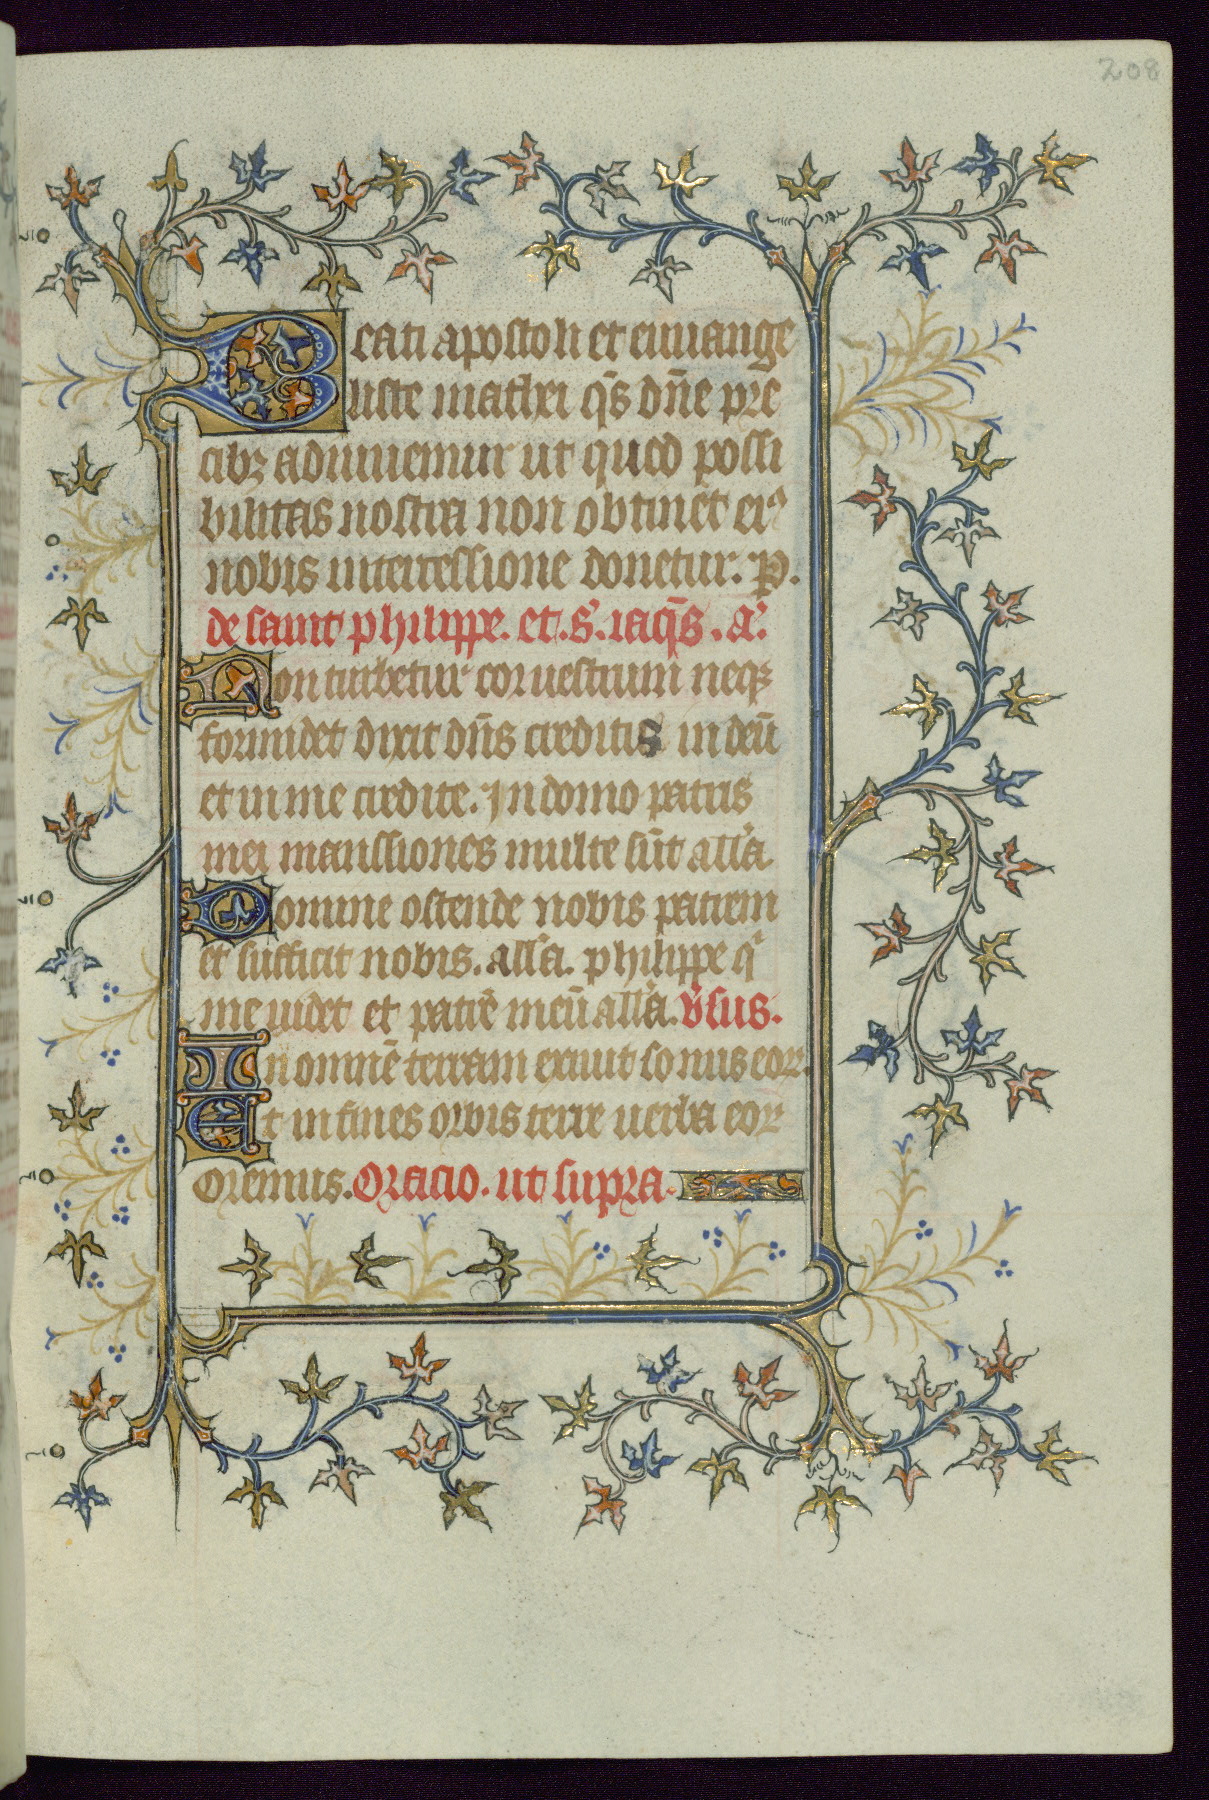 208
Beati apostoli et euuange
liste mathei q̄s dn̄e pre
cibꝫ adiuuemur ut quod possi
bilitas nostra non obtinet eiꝰ
nobis intercessione donetur. P.
de saint phelippe. et. s. iaq̄s. a.
Non turbetur cor uestrum neqꝫ
formidet dixit dn̄s creditis in deū
et in me credite. In domo patris
mei manssiones multe sūt all'a
Domine ostende nobis patrem
et sufficit nobis. all'a. philippe q'
me uidet et patrē meū all'a. v'sus.
In omnē terram exiuit sonus eoꝝ.
Et in fines orbis terre uerba eoꝝ
oremus. Oracio. ut supra.